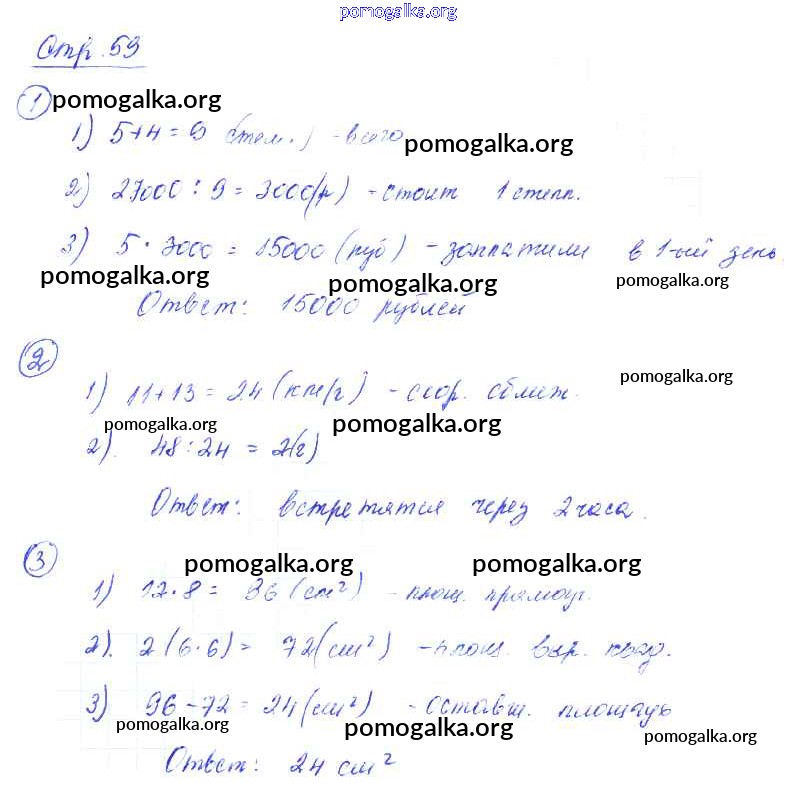 pomogalka.org
Стр. 59
① pomogalka.org
1) 5+4=9 (тел.) - всего
pomogalka.org
2) 27000 : 9 = 3000 (р) - стоит 1 степл.
3) 5 · 3000 = 15000 (руб) - заплатили в 1-ый день.
pomogalka.org pomogalka.org pomogalka.org
Ответ: 15000 рублей
②
1) 11+13 = 24 (км/ч) - скор. сближ.
pomogalka.org
pomogalka.org pomogalka.org
2). 48 : 24 = 2(ч)
Ответ: встретятся через 2 часа.
③
pomogalka.org pomogalka.org
1) 12·8 = 96 (см²) - площ. прямоуг.
2). 2(6·6) = 72(см²) - площ. выр. квад.
3) 96-72 = 24(см²) - оставш. площадь
pomogalka.org pomogalka.org pomogalka.org
Ответ: 24 см²